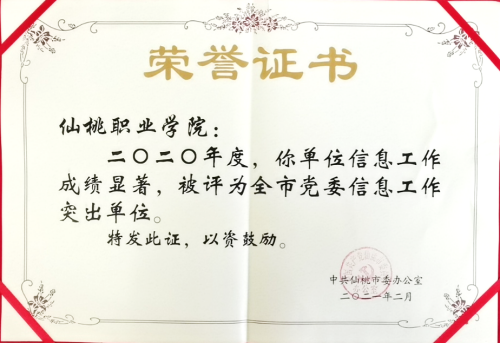 荣誉证书
仙桃职业学院：
二〇二〇年度，你单位信息工作
成绩显著，被评为全市党委信息工作
突出单位。
特发此证，以资鼓励。
中共仙桃市委办公室
二〇二一年二月